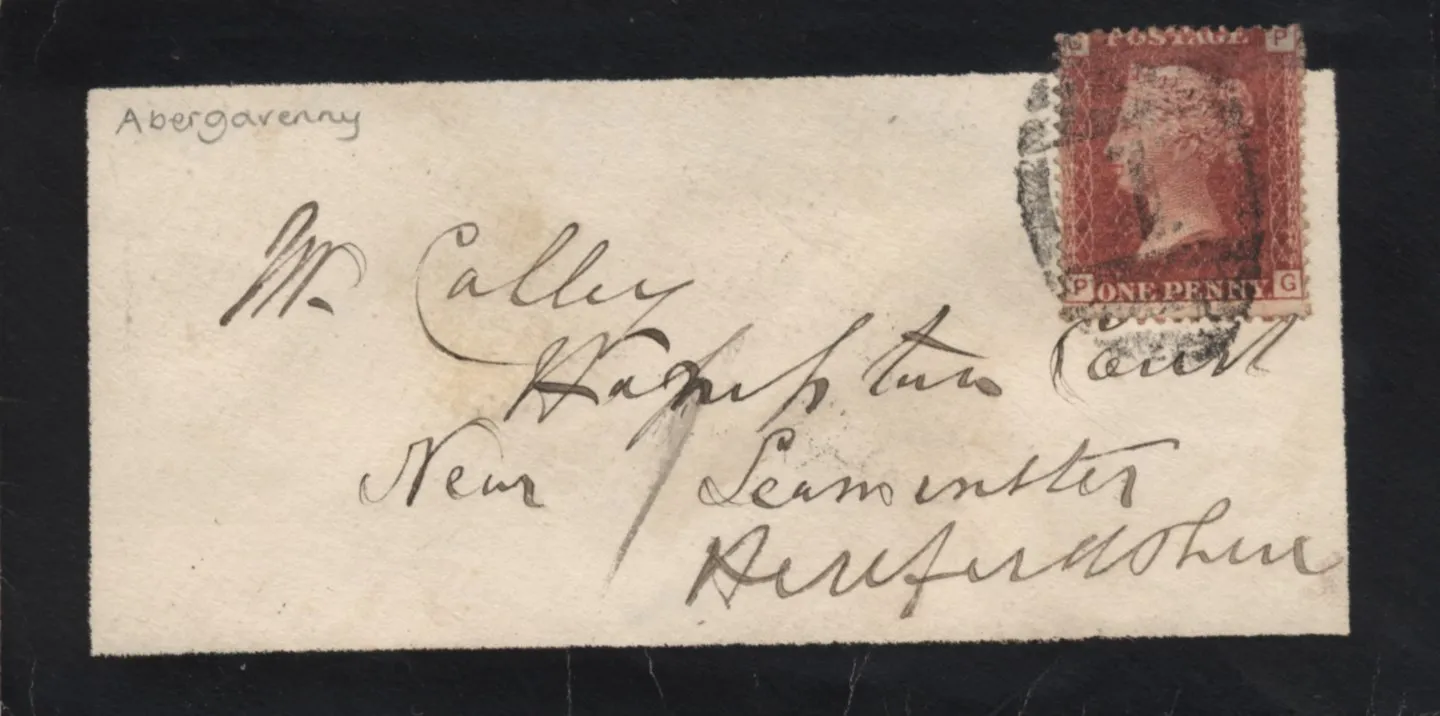 Abergavenny
G POSTAGE P
P ONE PENNY G
Mr Colley
Hampton Court
Near Leominster
Herefordshire